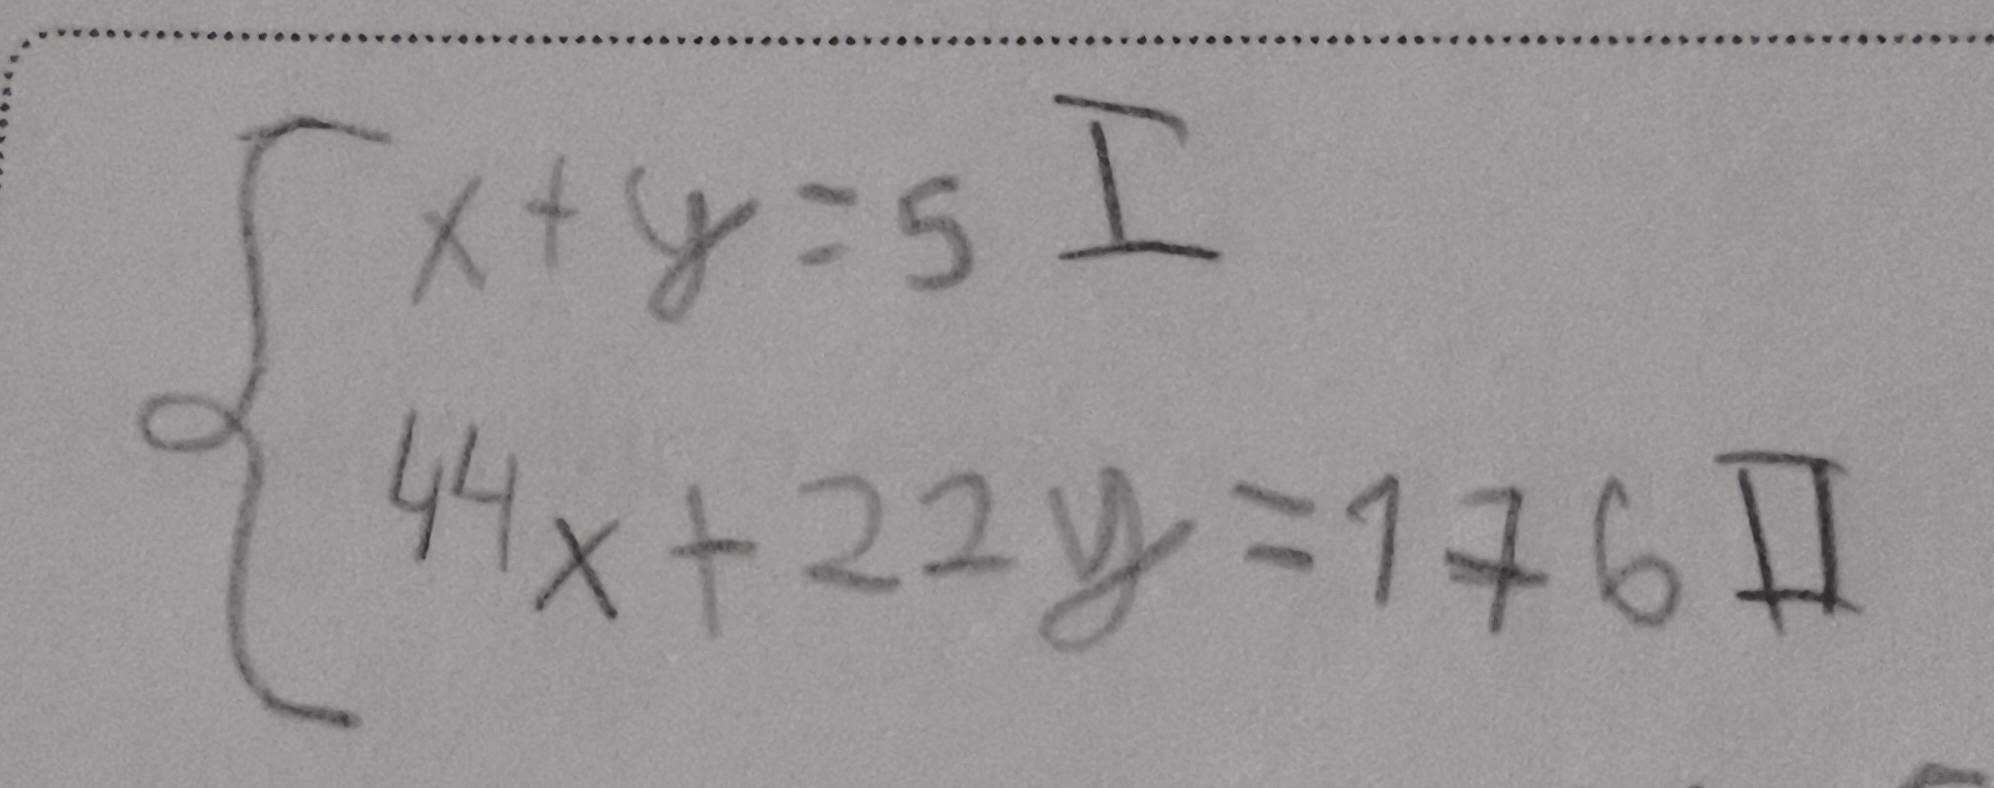 x+y=5 I
44x+22y=176 II